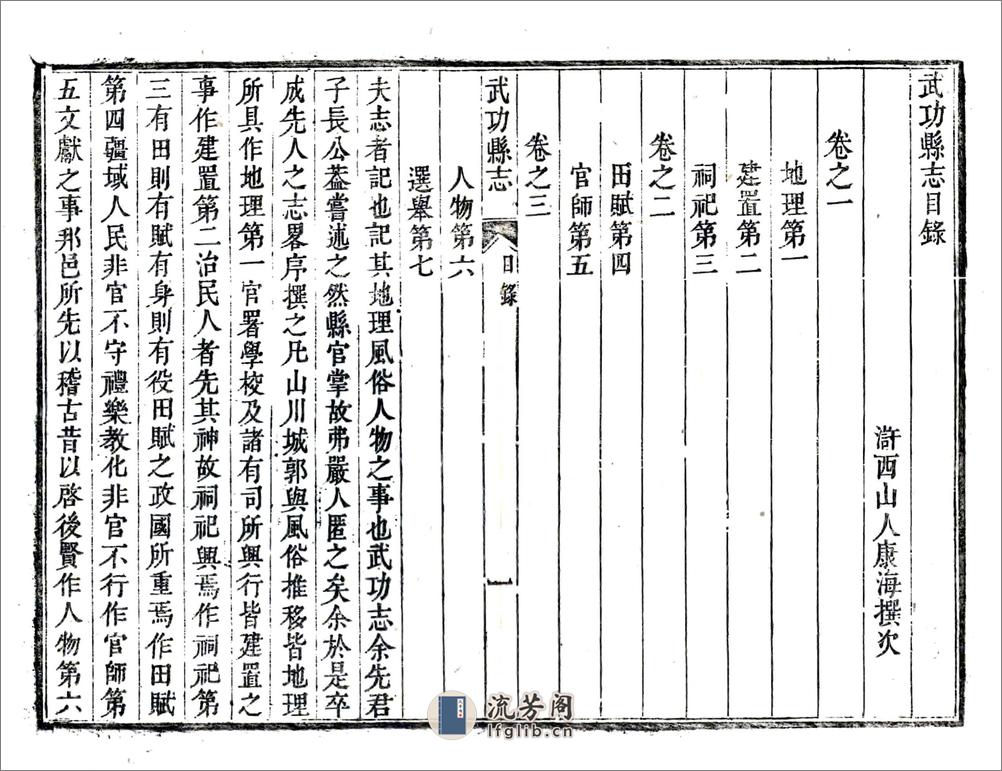 武功縣志目錄
滸西山人康海撰次
卷之一
地理第一
建置第二
祠祀第三
卷之二
田賦第四
官師第五
卷之三
武功縣志 目錄 一
人物第六
選舉第七
夫志者記也記其地理風俗人物之事也武功志余先君
子長公蓋嘗述之然縣官掌故弗嚴人匿之矣余於是卒
成先人之志畧序撰之凡山川城郭與風俗推移皆地理
所具作地理第一官署學校及諸有司所興行皆建置之
事作建置第二治民人者先其神故祠祀興焉作祠祀第
三有田則有賦有身則有役田賦之政國所重焉作田賦
第四疆域人民非官不守禮樂教化非官不行作官師第
五文獻之事邦邑所先以稽古昔以啓後賢作人物第六
流芳阁
lfglib.cn